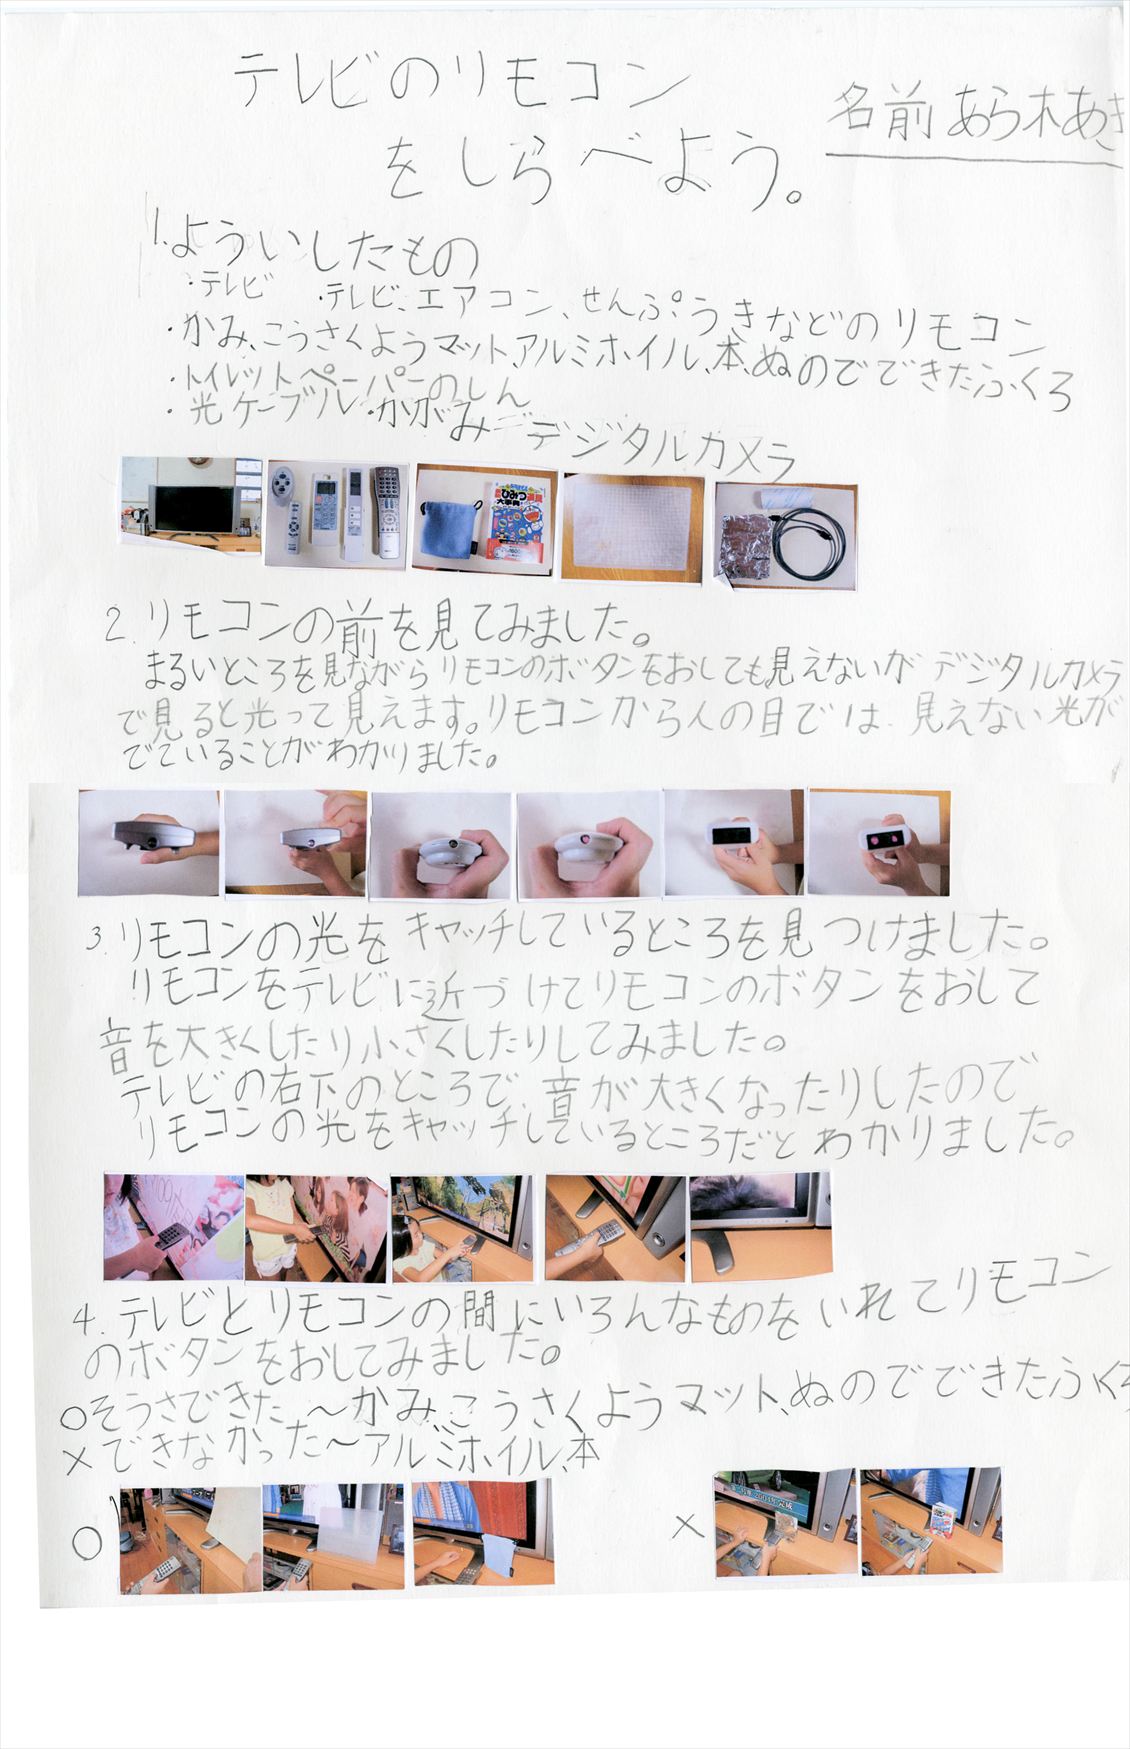 テレビのリモコン
をしらべよう。
名前 あら木あき
1.よういしたもの
・テレビ ・テレビ、エアコン、せんぷうきなどのリモコン
・かみ、こうさくようマット、アルミホイル、本、ぬのでできたふくろ
・トイレットペーパーのしん
・光ケーブル・かがみ・デジタルカメラ
ひみつ道具
大事典
2.リモコンの前を見てみました。
まるいところを見ながらリモコンのボタンをおしても見えないがデジタルカメラ
で見ると光って見えます。リモコンから人の目では、見えない光が
でていることがわかりました。
3.リモコンの光をキャッチしているところを見つけました。
リモコンをテレビに近づけてリモコンのボタンをおして
音を大きくしたり小さくしたりしてみました。
テレビの右下のところで、音が大きくなったりしたので
リモコンの光をキャッチしているところだとわかりました。
4.テレビとリモコンの間にいろんなものをいれてリモコン
のボタンをおしてみました。
○そうさできた〜かみ、こうさくようマット、ぬのでできたふくろ
×できなかった〜アルミホイル、本
○
×